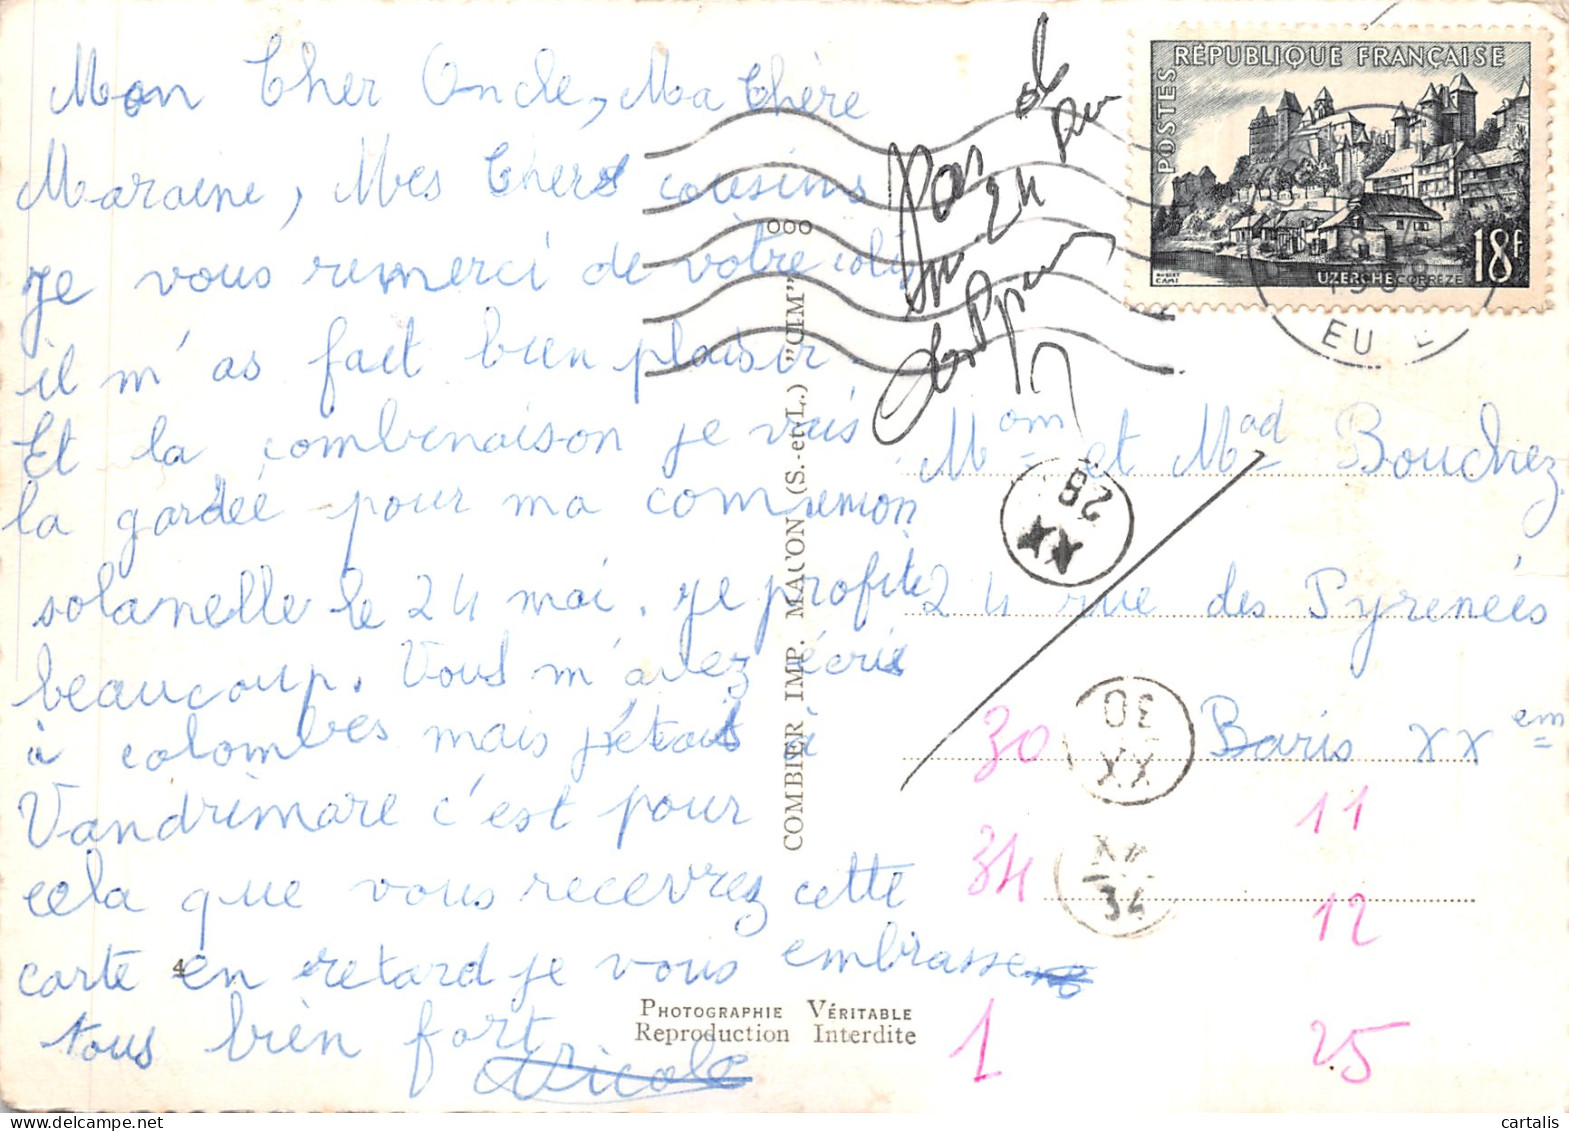 Mon Cher Oncle, Ma Chère
Maraine, Mes Chers cousins
Je vous remerci de vôtre colis
il m'as fait bien plaisir.
Et la combinaison je vais
la gardée pour ma commenion
solanelle le 24 mai. Je profite
beaucoup. Vous m'avez écris
à colombes mais j'étais à
Vandrimare c'est pour
cela que vous recevrez cette
carte en retard je vous embrasse
tous bien fort
Nicole
4
PHOTOGRAPHIE VÉRITABLE
Reproduction Interdite
COMBIER IMP. MACON (S.-et-L.) "CIM"
RÉPUBLIQUE FRANÇAISE
POSTES
UZERCHE CORRÈZE
18F
EU
Pas
au 24
des Pyren
Mom et Mad Bouchez
24 rue des Pyrenées
Paris XXem
XX
28
30
XX
XX
34
30
34
1
11
12
25
cartalis